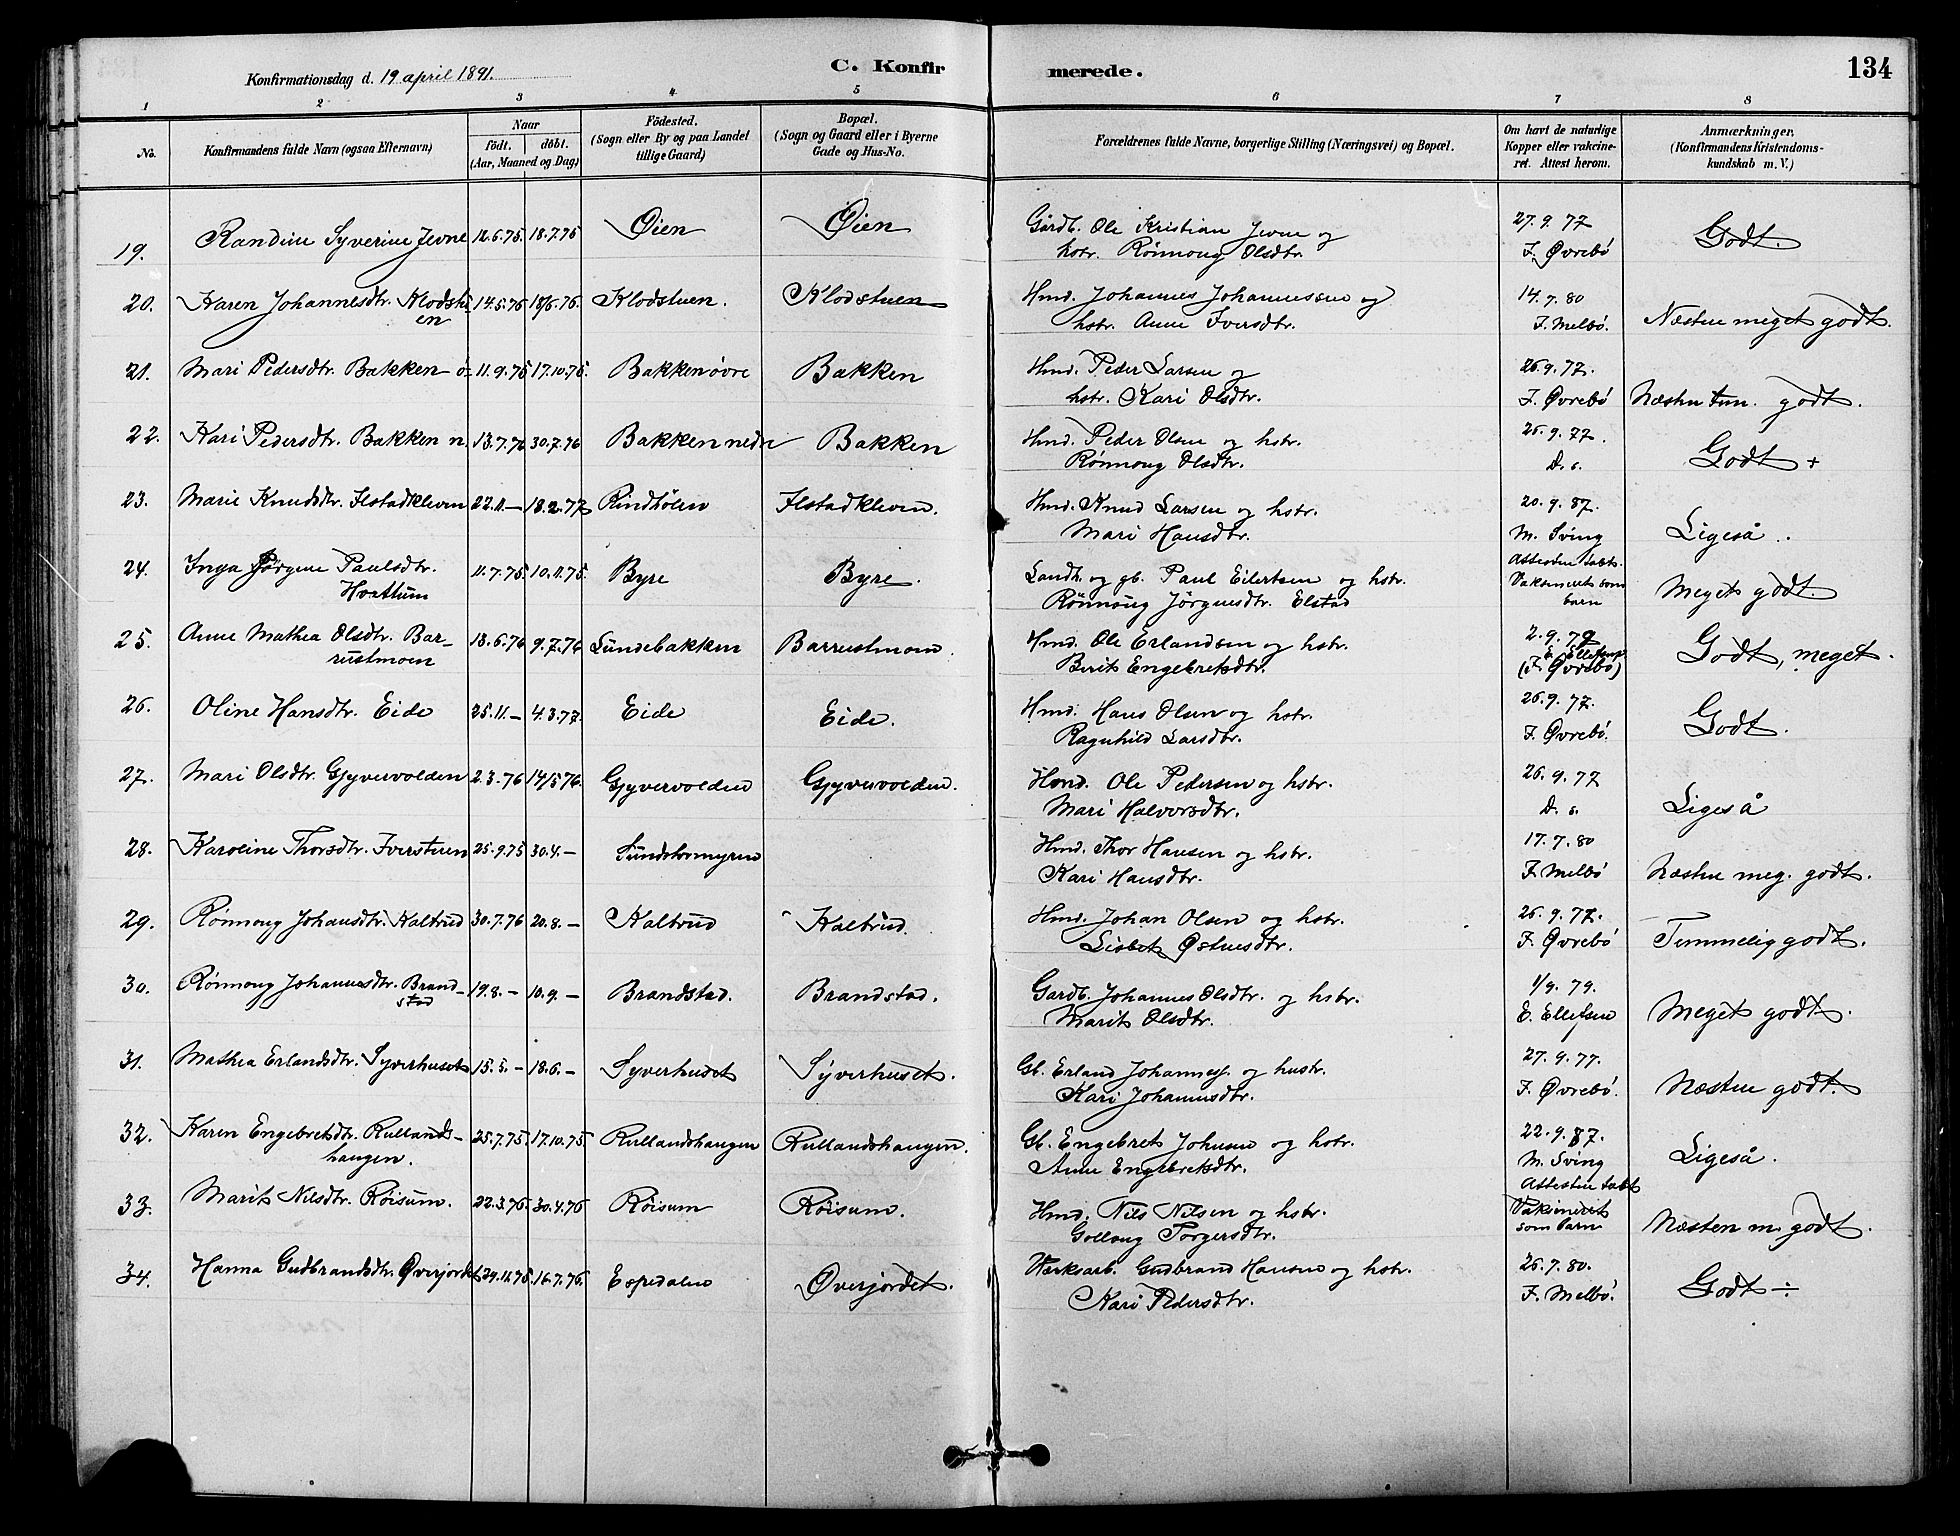 Konfirmationsdag d. 19 april 1891.
C. Konfirmerede.
134
1 2 3 4 5 6 7 8
No.
Konfirmandens fulde Navn (ogsaa Efternavn)
Naar
födt. döbt.
(Aar, Maaned og Dag)
Födested.
(Sogn eller By og paa Landet
tillige Gaard)
Bopæl.
(Sogn og Gaard eller i Byerne
Gade og Hus-No.
Forældrenes fulde Navne, borgerlige Stilling (Næringsvei) og Bopæl.
Om havt de naturlige
Kopper eller vakcine-
ret. Attest herom.
Anmærkninger.
(Konfirmandens Kristendoms-
kundskab m. V.)
19. Randine Syverine Jevne 12.6.75. 18.7.75 Øien Øien Gårdb. Ole Kristian Jevne og 27.9.77 Godt.
hstr. Rønnoug Olsdtr. F. Øvrebö
20. Karen Johannesdtr. Klodstu- 14.5.76 18/6.76. Klodstuen. Klodstuen Hmd. Johannes Johannessen og 14.7.80
en hstr. Anne Iversdtr. F. Melbö. Næsten meget godt.
21. Mari Pedersdtr. Bakken ö. 11.9.75 17.10.75. Bakken øvre Bakken Hmd. Peder Larsen og 26.9.77.
hstr. Kari Olsdtr. F. Øvrebö Næsten tem. godt.
22. Kari Pedersdtr. Bakken n. 13.7.76 30.7.76 Bakken nedre Bakken Hmd. Peder Olsen og hstr. 25.9.77. Godt +
Rønnoug Olsdtr. D. s.
23. Marie Knudsdtr. Ilstadkleven 22.11.— 18.2.77 Rindhölen Ilstadkleven. Hmd. Knud Larsen og hstr. 20.9.87.
Mari Hansdtr. M. Sving Ligeså.
24. Inga Jørgine Paulsdtr. 11.7.75. 10.11.75. Byre Byre. Landh. og gb. Paul Eilertsen og hstr. Attesten tabt.
Hvattum Rönnoug Jörgensdtr. Elstad Vaksineret som Meget godt.
barn
25. Anne Mathea Olsdtr. Bar- 18.6.76 9.7.76 Sundebakken Barrustmoen. Hmd. Ole Erlandsen og hstr. 2.9.79 Godt, meget.
rustmoen Berit Engebretsdtr. E. Ellefsen
(F. Øvrebö)
26. Oline Hansdtr. Eide 25.11.— 4.3.77. Eide Eide. Hmd. Hans Olsen og hstr. 26.9.77. Godt.
Ragnhild Larsdtr. F. Øvrebö.
27. Mari Olsdtr. Gjyvervolden 2.3.76 14/5 76. Gjyvervolden Gjyvervolden. Hmd. Ole Pedersen og hstr. 26.9.77
Mari Halvorsdtr. D. s. Ligeså
28. Karoline Thorsdtr. Iverstuen 25.9.75 30.4.— Hmd. Thor Hansen og hstr. 17.7.80
Kari Hansdtr. F. Melbö Næsten meg. godt.
29. Rönnoug Johansdtr. Kaltrud 30.7.76 20.8.— Kaltrud Kaltrud. Hmd. Johan Olsen og hstr. 26.9.77.
Lisbet Østensdtr. F. Øvrebö Temmelig godt.
30. Rönnoug Johannesdtr. Brand- 19.8.— 10.9.— Brandstad. Brandstad. Gardb. Johannes Olsdtr. og hstr. 1/9.79.
stad Marit Olsdtr. E. Ellefsen Meget godt.
31. Mathea Erlandsdtr. Syverhuset 15.5.— 18.6.— Syverhuset Syverhuset. Gb. Erland Johannes. og hustr. 27.9.77.
Kari Johannesdtr. F. Øvrebö. Næsten godt.
32. Karen Engebretsdtr. Rullands- 25.7.75. 17.10.75 Rullandshaugen Rullandshaugen. Gb. Engebret Johnsen og hstr. 22.9.87.
haugen. Anne Engebretsdtr. M. Sving Ligeså.
33. Marit Nilsdtr. Röisum. 22.3.76. 30.4.76 Röisum Röisum. Hmd. Nils Nilsen og hstr. Attesten tabt
Golloug Torgersdtr. Vaksineret
som barn Næsten m. godt.
34. Hanna Gudbrandsdtr. Øverjordet 29.11.75 16.7.76. Espedalen Øverjordet. Værksarb. Gudbrand Hansen og hstr. 26.7.80. Godt ÷
Kari Pedersdtr. F. Melbö.